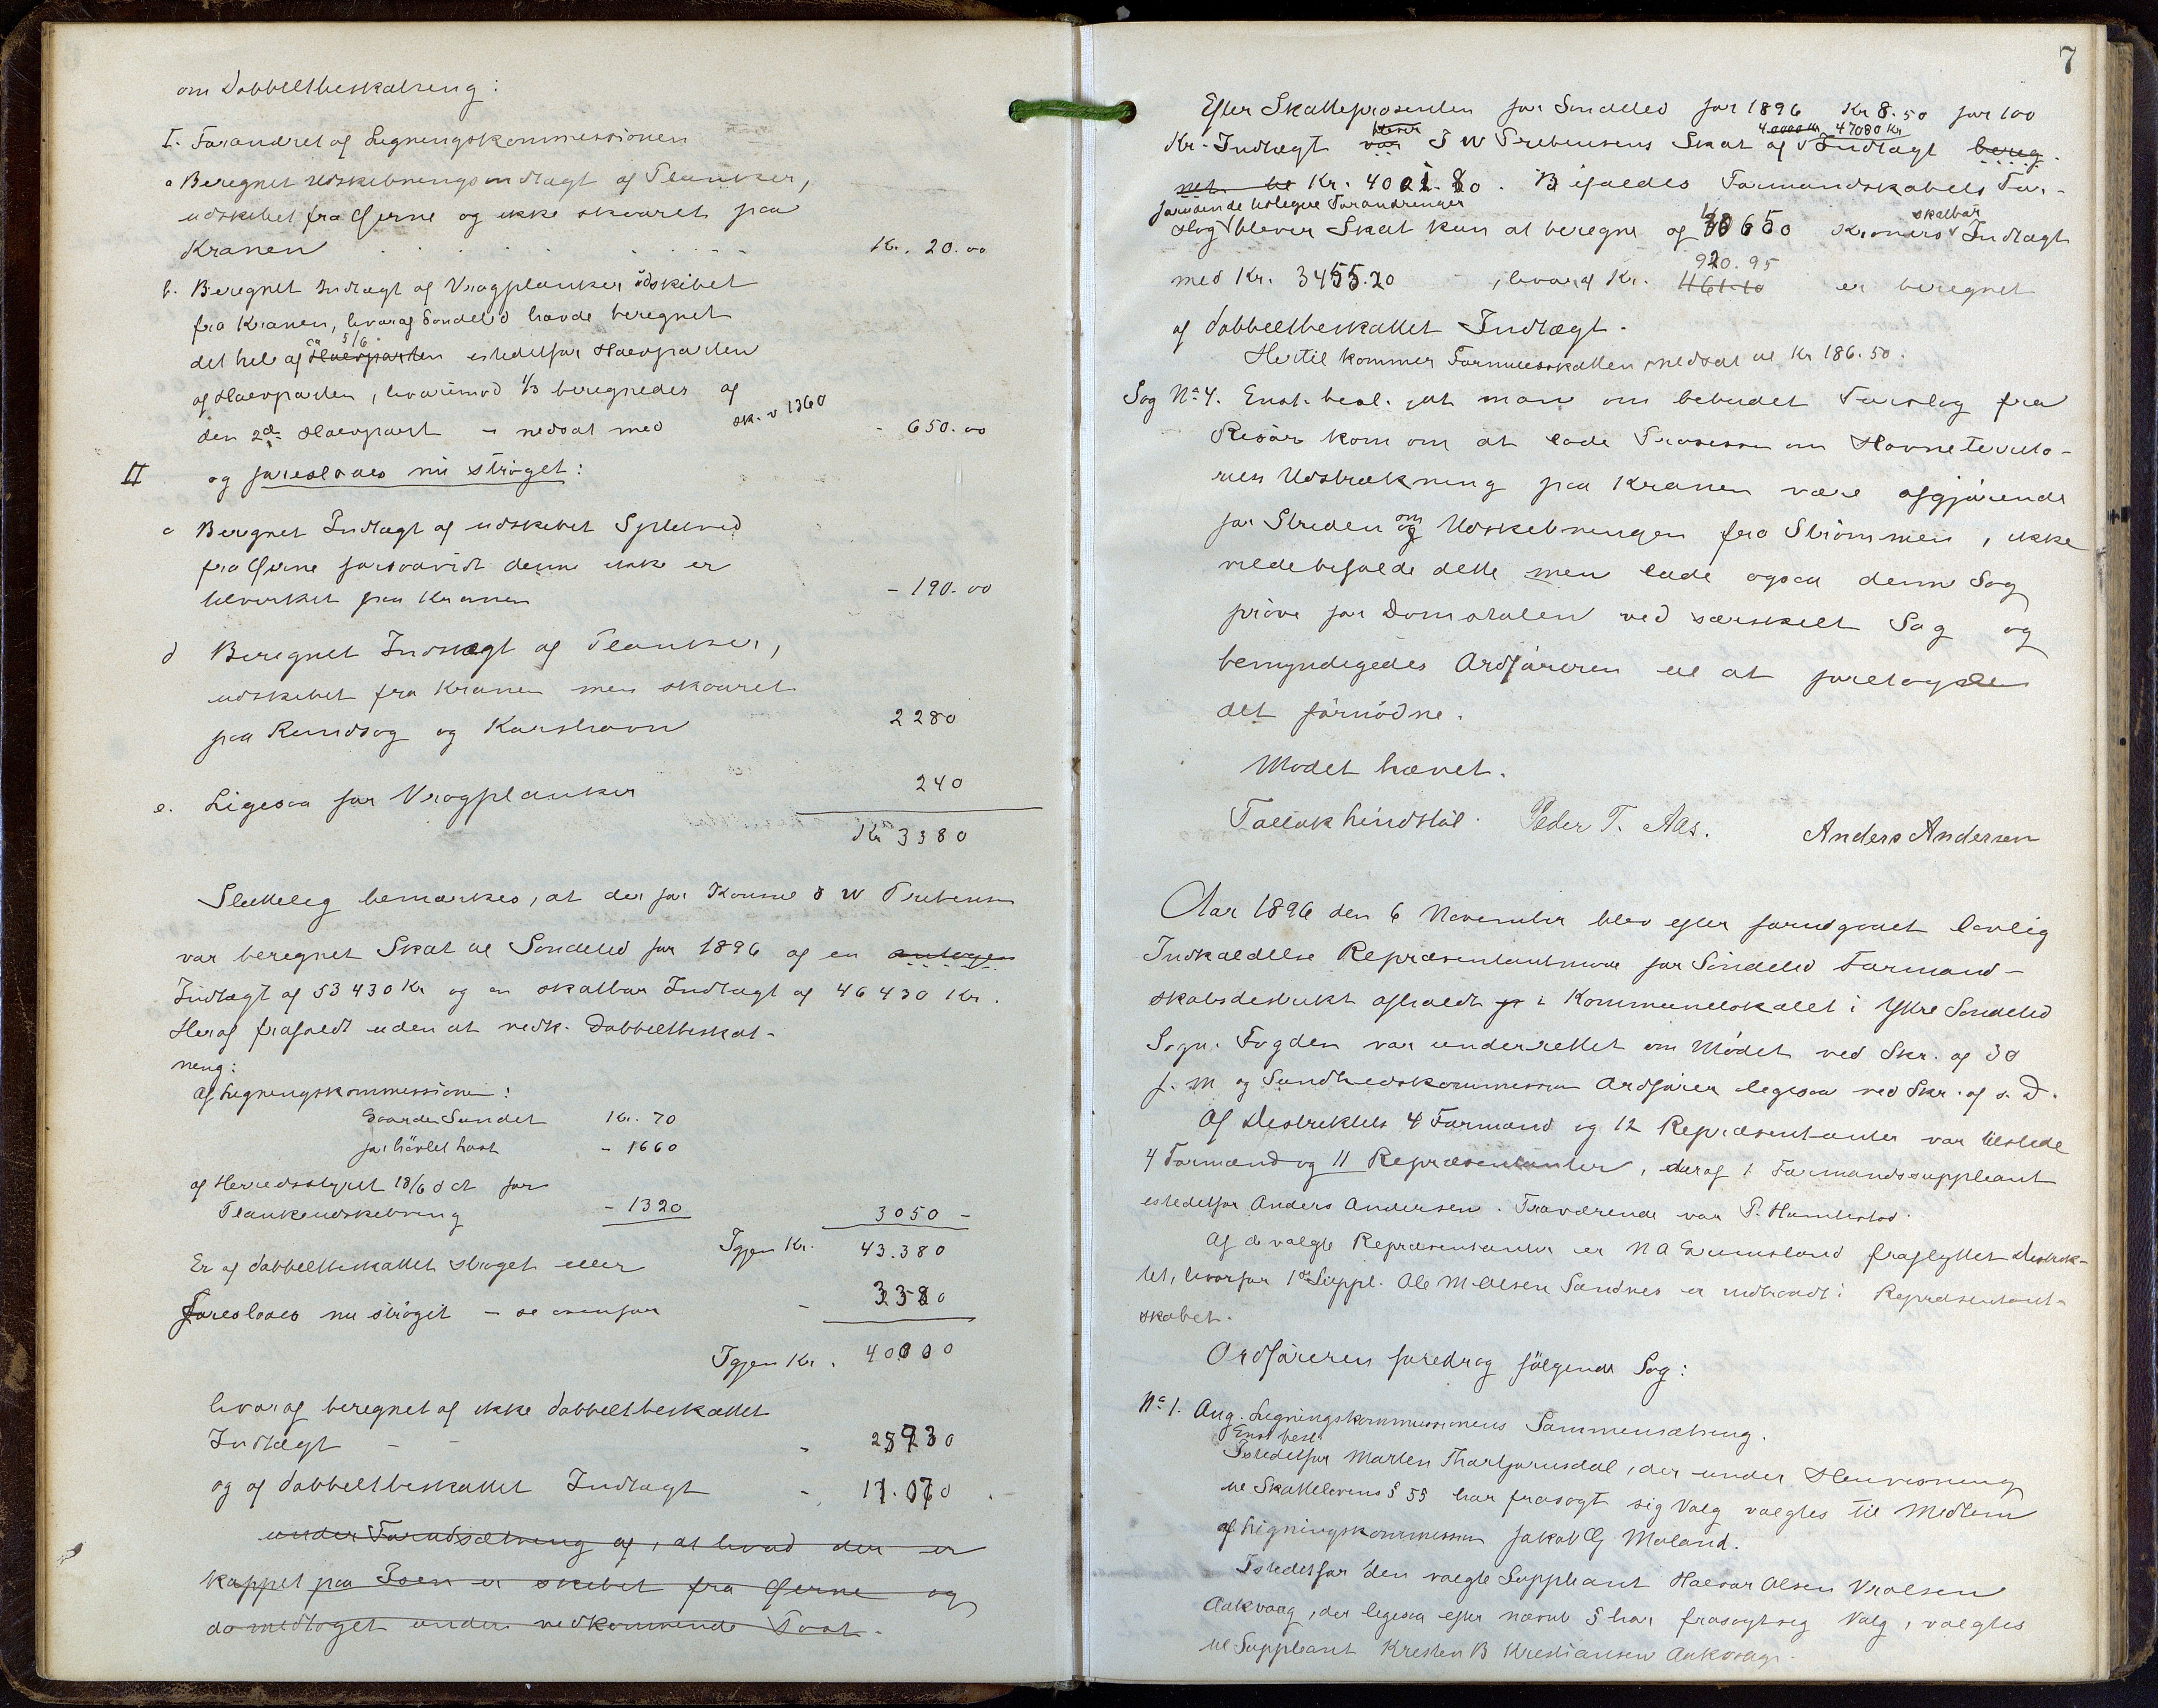 om Dobbeltbeskatning:
I. Forandret af Ligningskommissionen
a Beregnet Udskibningsindtægt af Planker,
udskibet fra Gjerne og ikke skaaret paa
Kranen Kr. 20.00
b. Beregnet Indtægt af Vragplanker udskibet
fra Kranen, hvoraf Søndeled havde beregnet
det hele af 5/6 Halvparten istedetfor Halvparten
af Halvparten, hvorimod 1/3 beregnedes af
den 2den Halvpart - nedsat med sk. v 1360 - 650.00
II og foreslaaes nu strøget:
c Beregnet Indtægt af udskibet Splitved
fra Gjerne forsaavidt denne ikke er
tilvirket paa Kranen - 190.00
d Beregnet Indtægt af Planker,
udskibet fra Kranen men skaaret
paa Rundsag og Karshavn 2280
e. Ligesaa for Vragplanker 240
Kr 3380
Sluttelig bemærkes, at der for Konsul J W Prebensen
var beregnet Skat til Søndeled for 1896 af en antagen
Indtægt af 53430 Kr og en skatbar Indtægt af 46430 Kr.
Heraf frafaldt uden at vedk. Dobbeltbeskat-
ning:
af Ligningskommissionen:
Gaarden Sundet Kr. 70
for hövlet last - 1660
af Herredsstyret 18/6 d A for
Plankeudskibning - 1320 3050 -
Igjen Kr. 43.380
Er af dobbeltbeskattet strøget eller
foreslaaes nu strøget - se ovenfor - 3380
Igjen Kr. 40000
hvoraf beregnet af ikke dobbeltbeskattet
Indtægt - - - 28930
og af dobbeltbeskattet Indtægt - 11.070.
under Forudsætning af, at hvad der er
kappet paa Isen er skibet fra Gjerne og
da medtaget under vedkommende Post.
7
Efter Skatteprosenten for Søndeled for 1896 Kr 8.50 for 100
bliver 40000 Kr 47080 Kr
Kr. Indtægt var J W Prebensens Skat af Indtægt bereg.
net til Kr. 4001.80. Bifaldes Formandskabets For-
foruden de tidligere Forandringer
slag bliver Skat kun at beregne af 40650 Kroners skatbar Indtægt
med Kr. 3455.20, hvoraf Kr. 461.10 920.95 er beregnet
af dobbeltbeskattet Indtægt.
Hertil kommer Formuesskatten, nedsat til Kr 186.50.
Sag No 4. Enst. besl. at man om bebudet Forslag fra
Risør kom om at lade Prosessen om Havneterrito-
riets Udstrækning paa Kranen være afgjørende
for Striden om og Udskibningen fra Strömmen, ikke
vilde bifalde dette men lade ogsaa denne Sag
prøve for Domstolen ved særskilt Sag og
bemyndigedes Ordføreren til at foretage
det fornödne.
Mødet hævet.
Tallak Lindstøl. Peder T. Aas. Anders Andersen
Aar 1896 den 6 November blev efter forudgaaet lovlig
Indkaldelse Repræsentantmøde for Søndeled Formand-
skabsdistrikt afholdt i Kommunelokalet i Ytre Søndeled
Sogn. Fogden var underrettet om Mødet ved Skr. af 30
f. M og Sundhedskommissionens Ordfører ligesaa ved Skr. af s. D.
Af Distriktets 4 Formænd og 12 Repræsentanter var tilstede
4 Formænd og 11 Repræsentanter, deraf 1 Formandssuppleant
istedetfor Anders Andersen. Fraværende var P. Humlestad.
Af de valgte Repræsentanter er N A Grumsland fraflyttet Distrik-
tet, hvorfor 1ste Suppl. Ole M. Olsen Sandnes er indtraadt i Repræsentant-
skabet.
Ordføreren foredrog følgende Sag:
No 1. Ang. Ligningskommissionens Sammensætning.
Enst besl.
Istedetfor Marten Thortjørnsdal, der under Henvisning
til Skattelovens § 55 har frasagt sig Valg valgtes til Medlem
af Ligningskommissionen Jakob G Moland.
Istedetfor den valgte Suppleant Halvor Olsen Vrolsen
Aakvaag, der ligesaa efter nævnte § har frasagt sig Valg, valgtes
til Suppleant Kristen B Kristiansen Aakvaag.